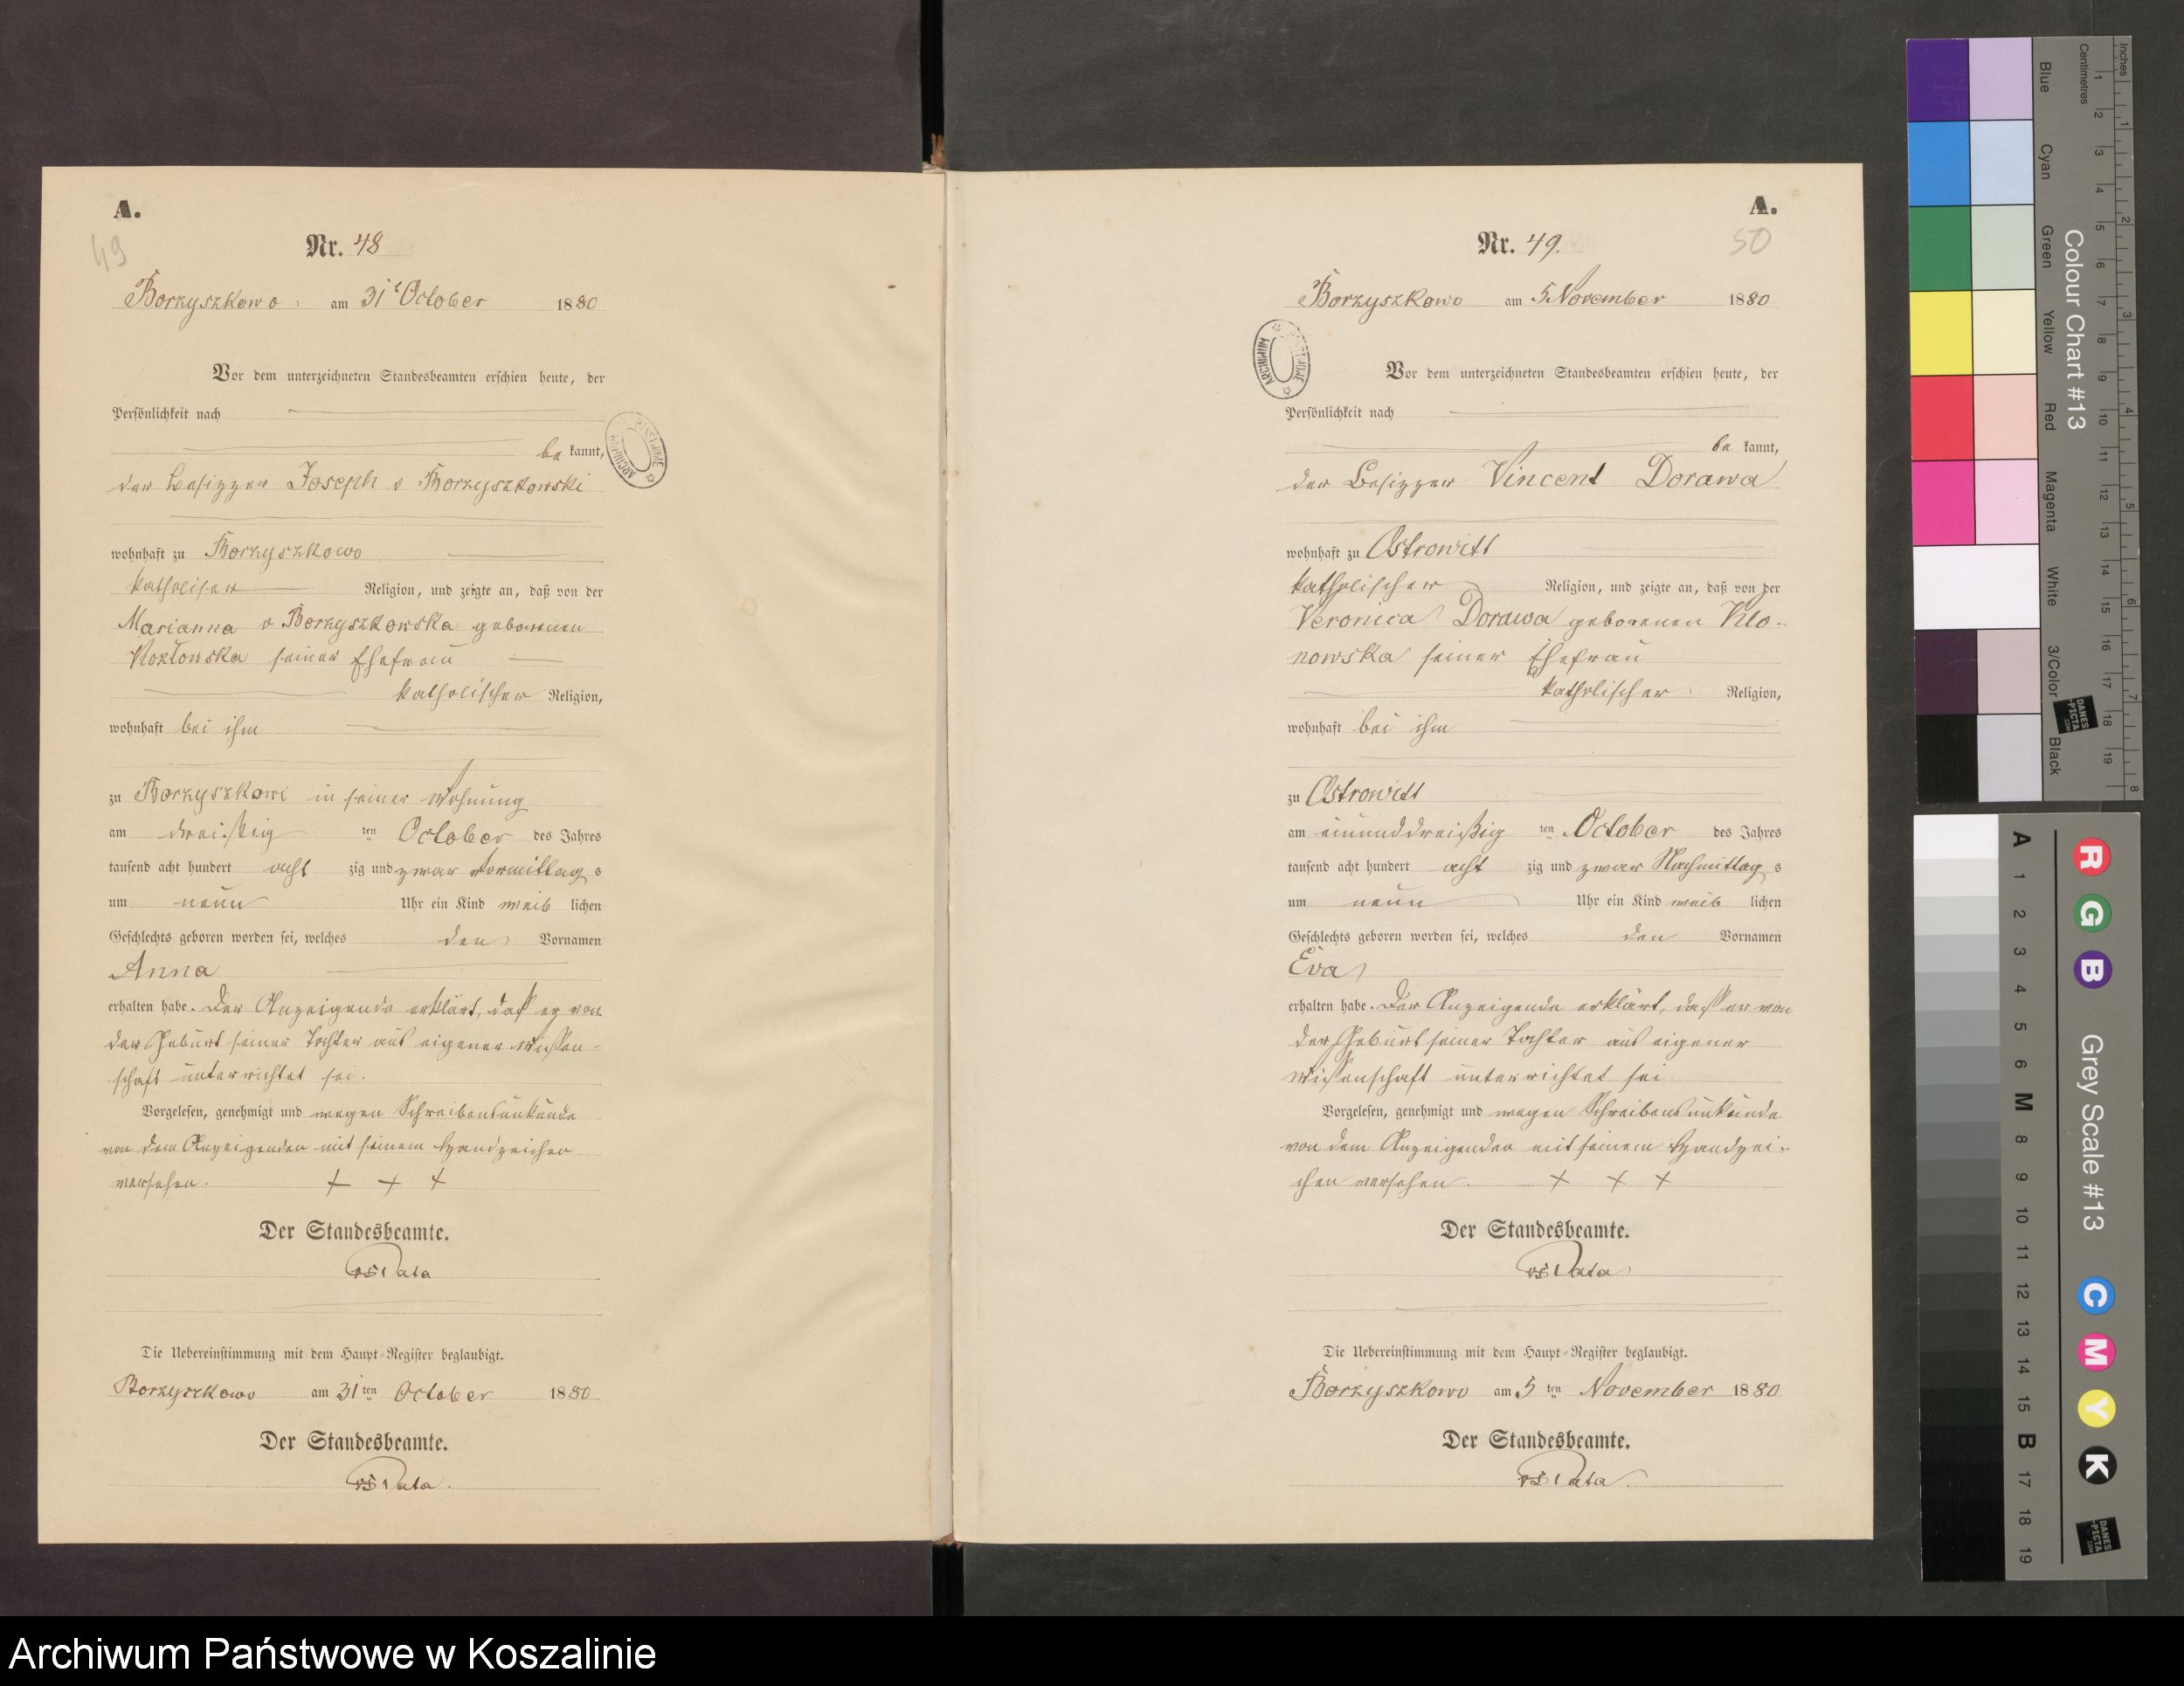 A.
49
Nr. 48
Borzyszkowo am 31t October 1880
Vor dem unterzeichneten Standesbeamten erschien heute, der
Persönlichkeit nach
be kannt,
der Besizzer Joseph v Borzyszkowski
wohnhaft zu Borzyszkowo
katholischer Religion, und zeigte an, daß von der
Marianna v Borzyszkowska geborenen
Kozłowska seiner Ehefrau
katholischer Religion,
wohnhaft bei ihm
zu Borzyszkowo in seiner Wohnung
am dreißig ten October des Jahres
tausend acht hundert acht zig und zwar Vormittag s
um neun Uhr ein Kind weib lichen
Geschlechts geboren worden sei, welches den Vornamen
Anna
erhalten habe. Der Anzeigende erklärt, daß er von
der Geburt seiner Tochter aus eigener Wissen-
schaft unterrichtet sei.
Vorgelesen, genehmigt und wegen Schreibensunkunde
von dem Anzeigenden mit seinem Handzeichen
versehen. + + +
Der Standesbeamte.
Die Uebereinstimmung mit dem Haupt-Register beglaubigt.
Borzyszkowo am 31 ten October 1880
Der Standesbeamte.
A.
50
Nr. 49.
Borzyszkowo am 5 November 1880
ARCHIWUM
Vor dem unterzeichneten Standesbeamten erschien heute, der
Persönlichkeit nach
be kannt,
der Besizzer Vincent Dorawa
wohnhaft zu Ostrowitt
katholischer Religion, und zeigte an, daß von der
Veronica Dorawa geborenen Klo-
nowska seiner Ehefrau
katholischer Religion,
wohnhaft bei ihm
zu Ostrowitt
am einunddreißig ten October des Jahres
tausend acht hundert acht zig und zwar Nachmittag s
um neun Uhr ein Kind weib lichen
Geschlechts geboren worden sei, welches den Vornamen
Eva
erhalten habe. Der Anzeigende erklärt, daß er von
der Geburt seiner Tochter aus eigener
Wissenschaft unterrichtet sei
Vorgelesen, genehmigt und wegen Schreibensunkunde
von dem Anzeigenden mit seinem Handzei-
chen versehen. + + +
Der Standesbeamte.
Die Uebereinstimmung mit dem Haupt-Register beglaubigt.
Borzyszkowo am 5 ten November 1880
Der Standesbeamte.
Inches
Centimetres
Colour Chart #13
Blue
Cyan
Green
Yellow
Red
Magenta
White
3/Color
Black
DANES-PICTA.COM
Grey Scale #13
A 1 2 3 4 5 6 M 8 9 10 11 12 13 14 15 B 17 18 19
R G B C M Y K
Archiwum Państwowe w Koszalinie